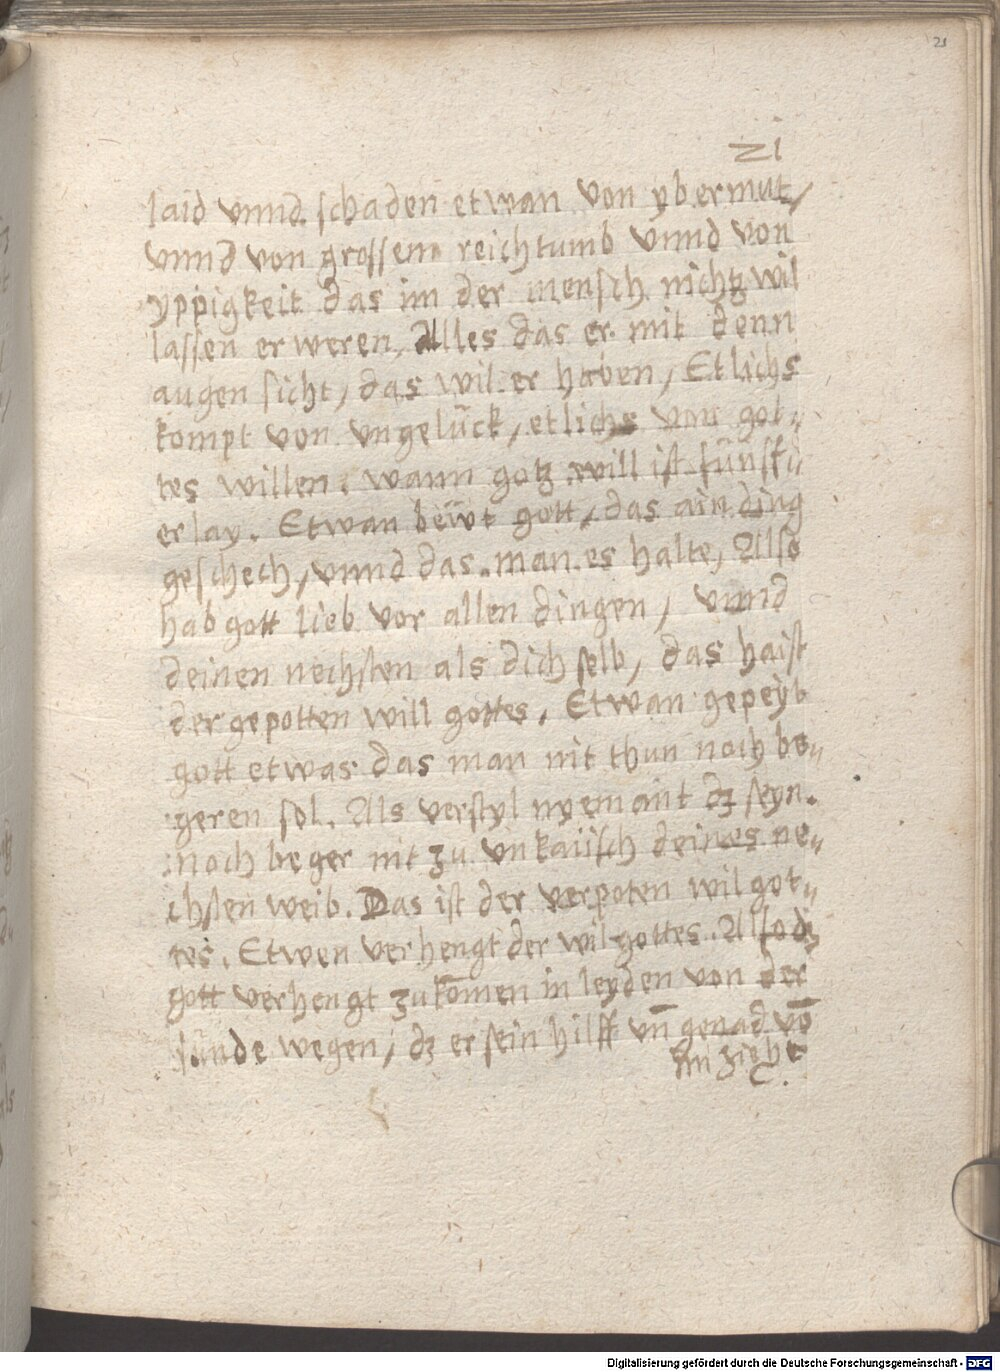 21
21
laid vnnd schaden etwan von ybermut/
vnnd von grossem reichtumb vnnd von
yppigkeit das im der mensch nichtz wil
lassen erweren, Alles das er mit denn
augen sicht, das wil er haben, Etlichs
kompt von vngelück, etlichs von got„
tes willen. wann gotz will ist fünff„
erlay. Etwan bewt gott, das ain ding
geschech, vnnd das man es halte, Also
hab gott lieb vor allen dingen, vnnd
deinen nechsten als dich selb, das haist
der gepotten will gottes. Etwan gepeÿt
gott etwas das man nit thun noch be„
geren sol. Als verstyl nyemant dz seyn.
noch beger nit zu vnkaüsch deines ne„
chsten weib. Das ist der verpoten wil got„
tes. Etwen verhengt der wil gottes. Also dz
gott verhengt zukomen in leyden von der
sünde wegen, dz er sein hilff vn̄ genad vō
im zicht
Digitalisierung gefördert durch die Deutsche Forschungsgemeinschaft - DFG